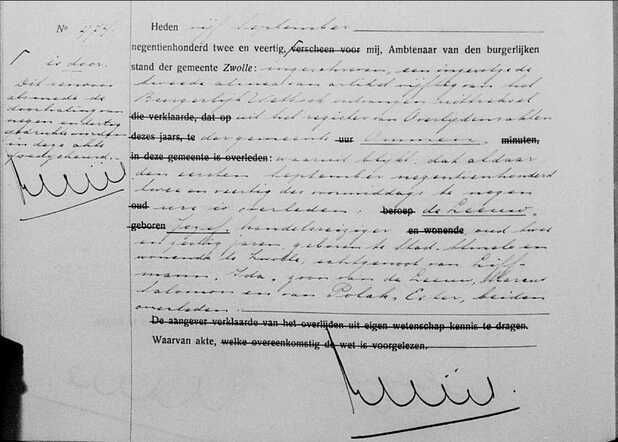 Nº 775.
is door.
Dit renvooi
alsmede de
doorhaling van
negen en dertig
gedrukte woorden
in deze akte
goedgekeurd.
Heden vijf September
negentienhonderd twee en veertig, verscheen voor mij, Ambtenaar van den burgerlijken
stand der gemeente Zwolle: ingeschreven, een ingevolge de
tweede alinea van artikel vijftig van het
Burgerlijk Wetboek ontvangen uittreksel
die verklaarde, dat op uit het register van Overlijdensakten
dezes jaars, te der gemeente uur Ommen, minuten,
in deze gemeente is overleden: waaruit blijkt, dat aldaar
den eersten September negentienhonderd
twee en veertig des voormiddags te negen
oud ure is overleden, beroep de Leeuw,
geboren Jozef, handelsreiziger en wonende, oud twee
en veertig jaren, geboren te Stad Almelo en
wonende te Zwolle, echtgenoot van Liff-
mann, Ida, zoon van de Leeuw, Marcus
Salomon en van Polak, Ester, beiden
overleden.
De aangever verklaarde van het overlijden uit eigen wetenschap kennis te dragen.
Waarvan akte, welke overeenkomstig de wet is voorgelezen.